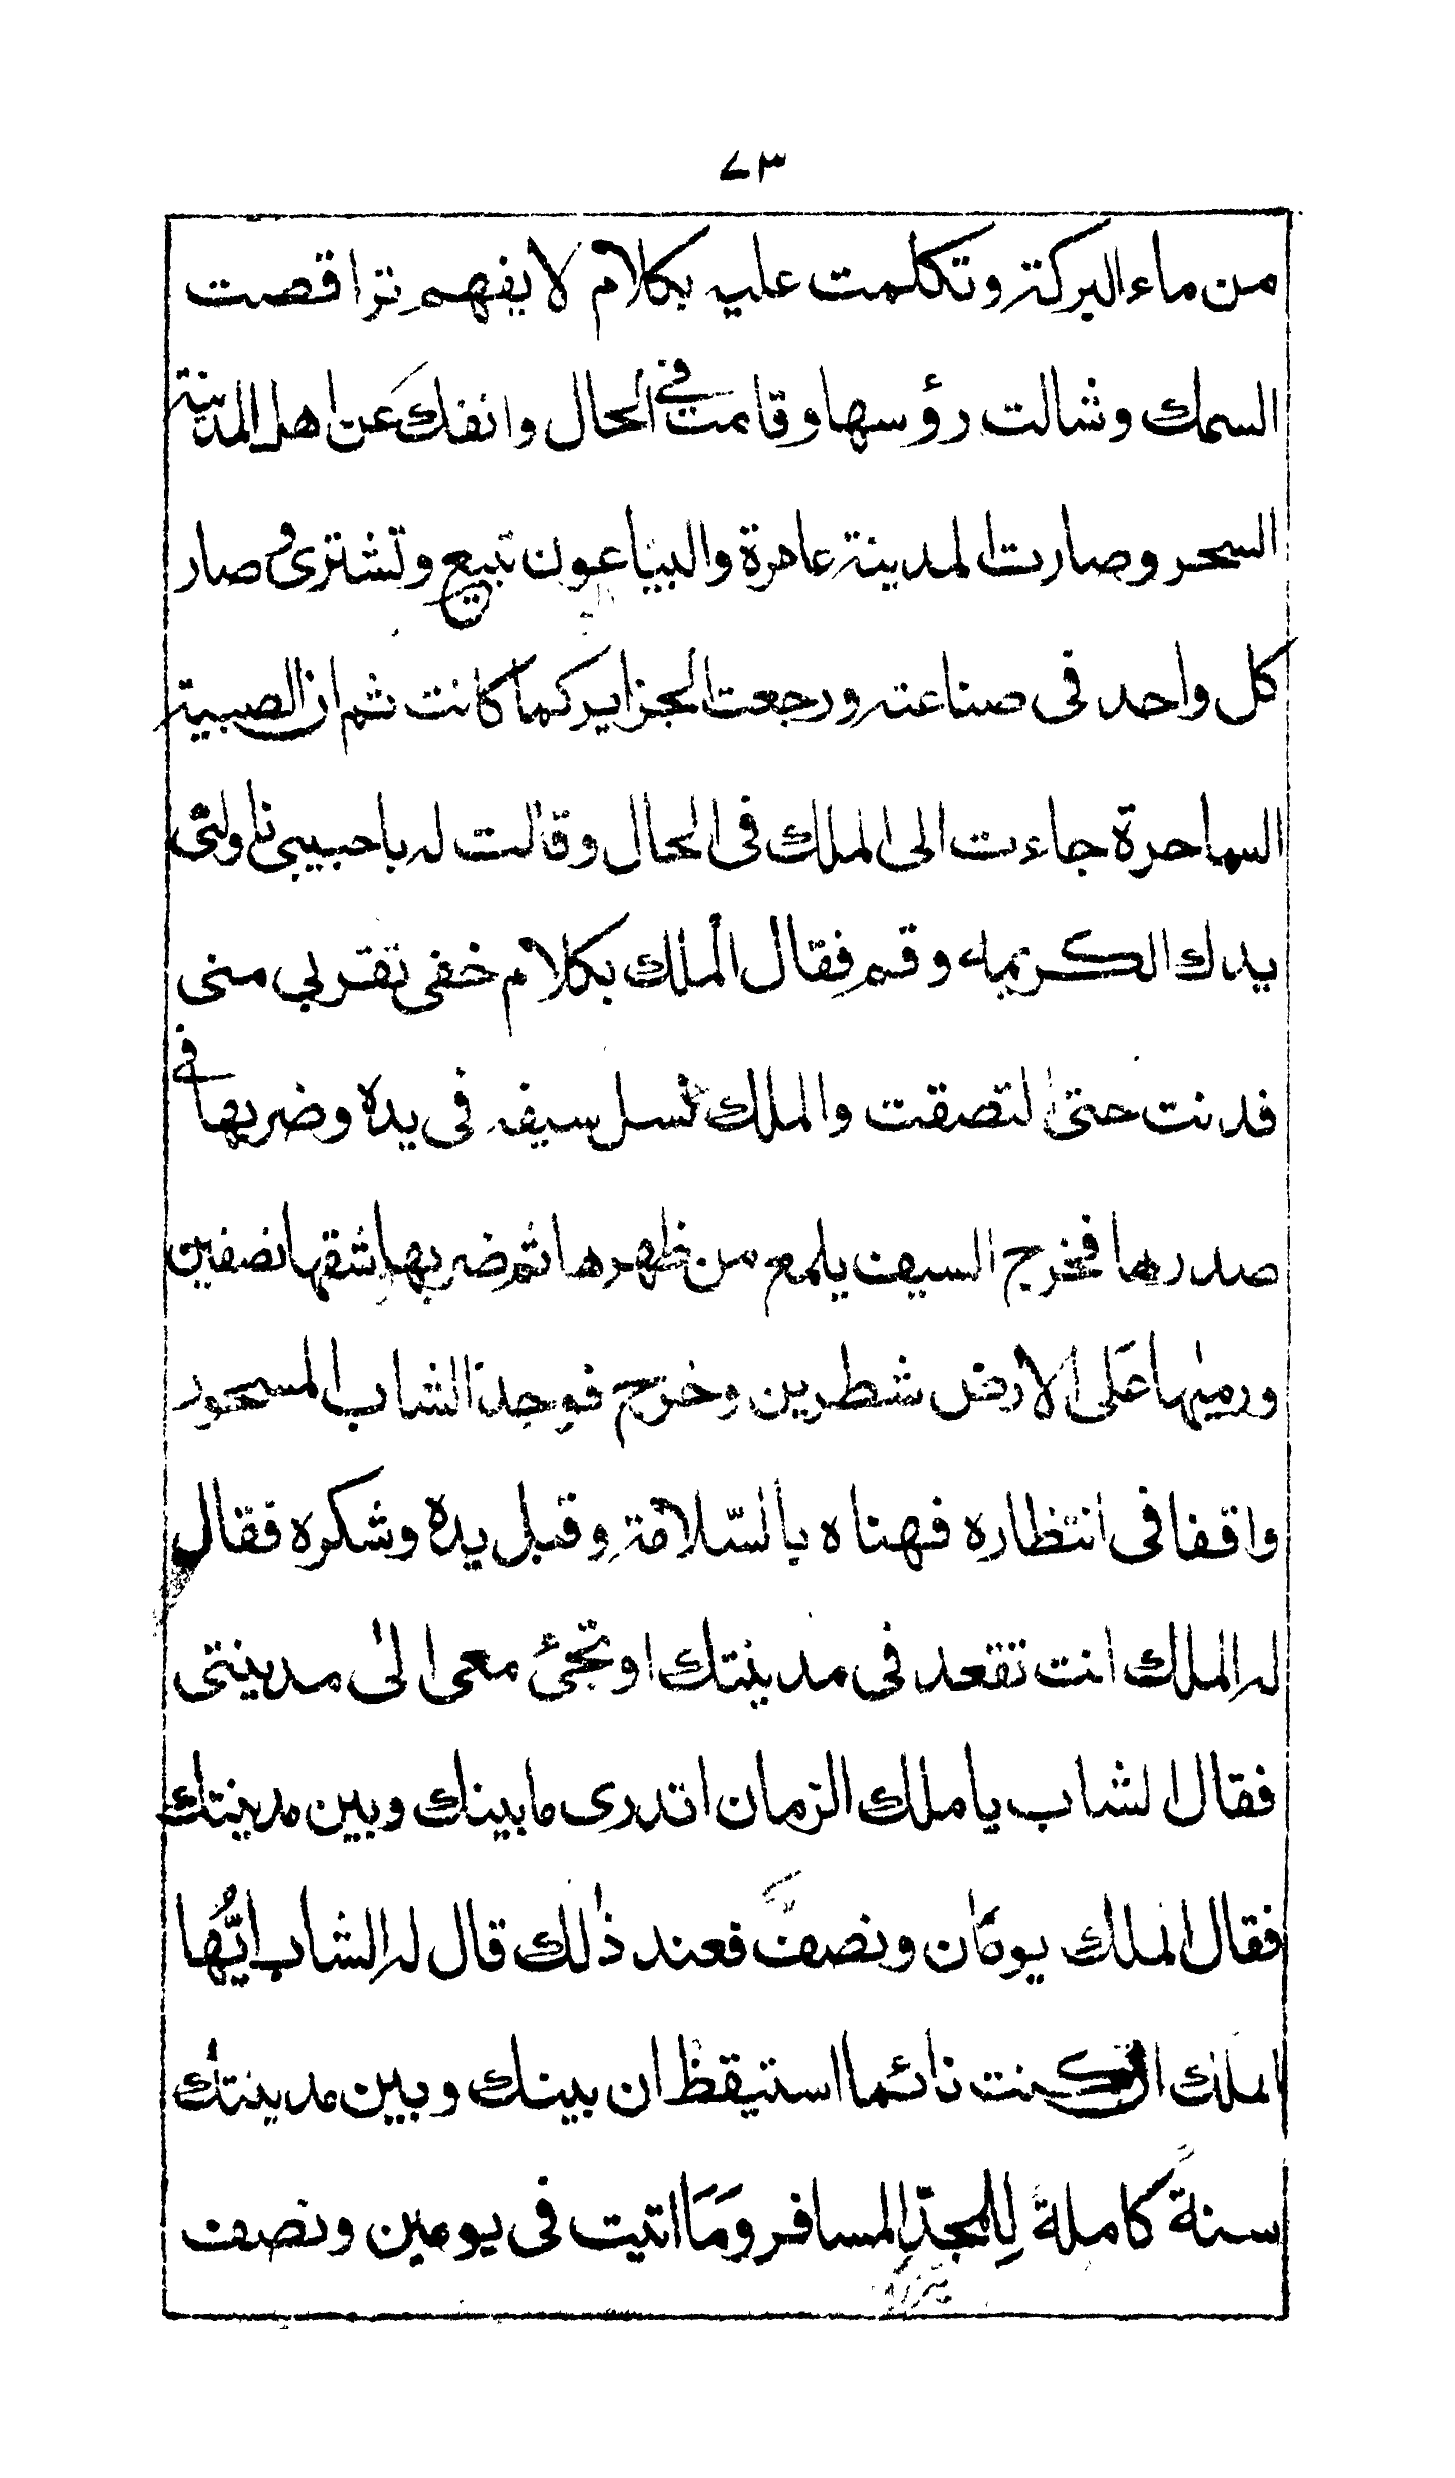 ٧٣
من ماء البركة وتكلمت عليه بكلام لا يفهم تراقصت
السمك وشالت رؤسها وقامت في الحال وانفك عن اهل المدينة
السحر وصارت المدينة عامرة والبياعون تبيع وتشترى وصار
كل واحد فى صناعته ورجعت الجزاير كما كانت ثم ان الصبية
الساحرة جاءت الى الملك فى الحال وقالت له يا حبيبى ناولنى
يدك الكريمه وقم فقال الملك بكلام خفى تقربي منى
فدنت حتى التصقت والملك سل سيفه فى يده وضربها في
صدرها فخرج السيف يلمع من ظهرها ثم ضربها شقها نصفين
ورميها على الارض شطرين وخرج فوجد الشاب المسحور
واقفا فى انتظاره فهناه بالسّلامة وقبل يده وشكره فقال
له الملك انت تقعد فى مدينتك او تجئ معى الى مدينتى
فقال الشاب يا ملك الزمان اتدرى ما بينك وبين مدينتك
فقال الملك يومان ونصف فعند ذلك قال له الشاب ايّها
الملك ان كنت نائما استيقظ ان بينك وبين مدينتك
سنة كاملة لِلمجدّ المسافر وَمَا اتيت فى يومين ونصف